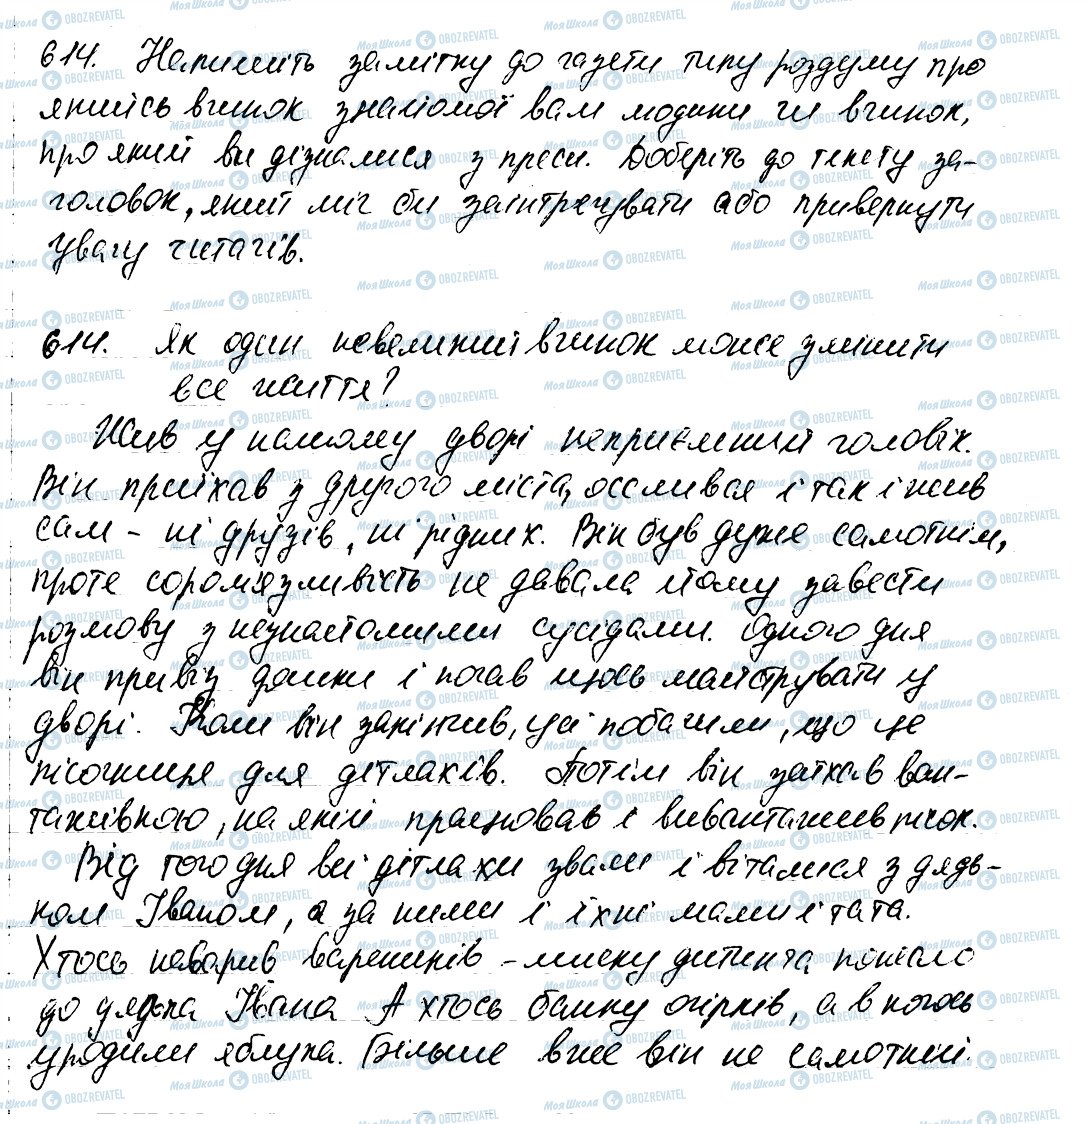 614. Напишіть замітку до газети типу роздуму про
якийсь вчинок знайомої вам людини чи вчинок,
про який ви дізналися з преси. Доберіть до тексту за-
головок, який міг би заінтригувати або привернути
увагу читачів.
614. Як один невеликий вчинок може змінити
все життя?
Жив у нашому дворі неприємний чоловік.
Він приїхав з другого міста, оселився і так і жив
сам - ні друзів, ні рідних. Він був дуже самотнім,
проте сором'язливість не давала йому завести
розмову з незнайомими сусідами. Одного дня
він привіз дошки і почав щось майструвати у
дворі. Коли він закінчив, усі побачили, що це
пісочниця для дітлахів. Потім він заїхав ван-
тажівкою, на якій працював і вивантажив пісок.
Від того дня всі дітлахи звали і віталися з дядь-
ком Іваном, а за ними і їхні мами і тата.
Хтось наварив вареників - миску дитинча понесло
до дядька Івана. А хтось банку огірків, а в когось
уродили яблука. Більше вже він не самотній.